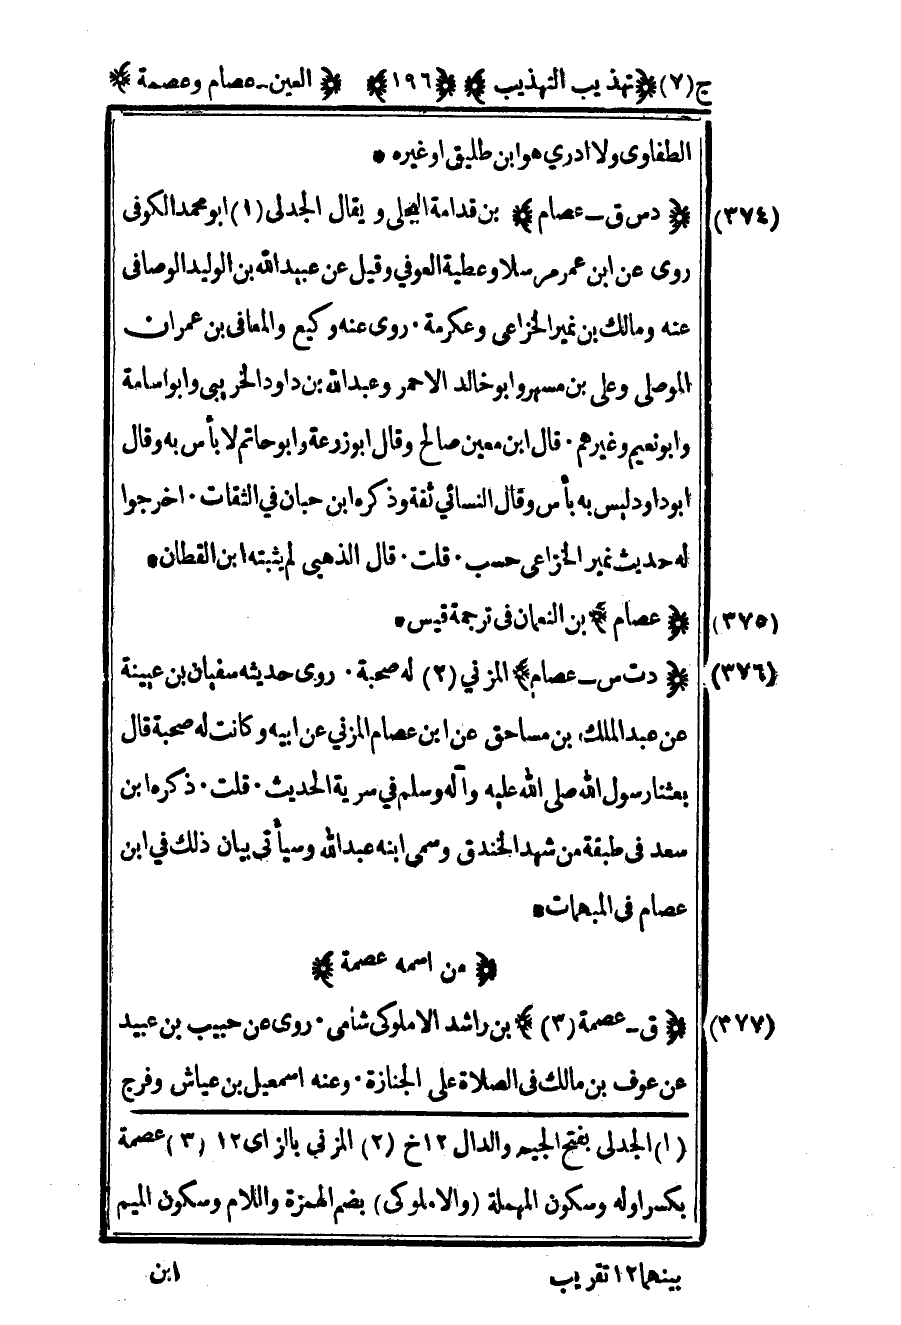 ج(٧) ﴿تهذيب التهذيب﴾ ﴿١٩٦﴾ ﴿العين-عصام وعصمة﴾
الطفاوى ولا ادري هو ابن طليق او غيره •
(٣٧٤) ﴿دس ق-عصام﴾ بن قدامة البجلى ويقال الجدلى (١) ابو محمد الكوفى
روى عن ابن عمر مرسلا وعطية العوفي وقيل عن عبيدالله بن الوليد الوصافى
عنه ومالك بن نمير الخزاعى وعكرمة· روى عنه وكيع والمعافى بن عمران
الموصلى وعلى بن مسهر وابو خالد الاحمر وعبدالله بن داود الخريبى وابو اسامة
وابو نعيم وغيرهم· قال ابن معين صالح وقال ابوزرعة وابو حاتم لا بأس به وقال
ابوداود ليس به بأس وقال النسائي ثقة وذكره ابن حبان في الثقات· اخرجوا
له حديث نمير الخزاعى حسب· قلت· قال الذهبى لم يثبته ابن القطان •
(٣٧٥) ﴿عصام﴾ بن النعمان فى ترجمة قيس •
(٣٧٦) ﴿دت س-عصام﴾ المزني (٢) له صحبة· روى حديثه سفيان بن عيينة
عن عبد الملك بن مساحق عن ابن عصام المزني عن ابيه وكانت له صحبة قال
بعثنا رسول الله صلى الله عليه وآله وسلم في سرية الحديث· قلت· ذكره ابن
سعد فى طبقة من شهد الخندق وسمى ابنه عبدالله وسيأتى بيان ذلك في ابن
عصام فى المبهمات •
﴿من اسمه عصمة﴾
(٣٧٧) ﴿ق-عصمة (٣)﴾ بن راشد الاملوكى شامى· روى عن حبيب بن عبيد
عن عوف بن مالك فى الصلاة على الجنازة· وعنه اسمعيل بن عياش وفرج
(١) الجدلى بفتح الجيم والدال ١٢ خ (٢) المزني بالزاى ١٢ (٣) عصمة
بكسر اوله وسكون المهملة (والاملوكى) بضم الهمزة واللام وسكون الميم
بينهما ١٢ تقريب
ابن